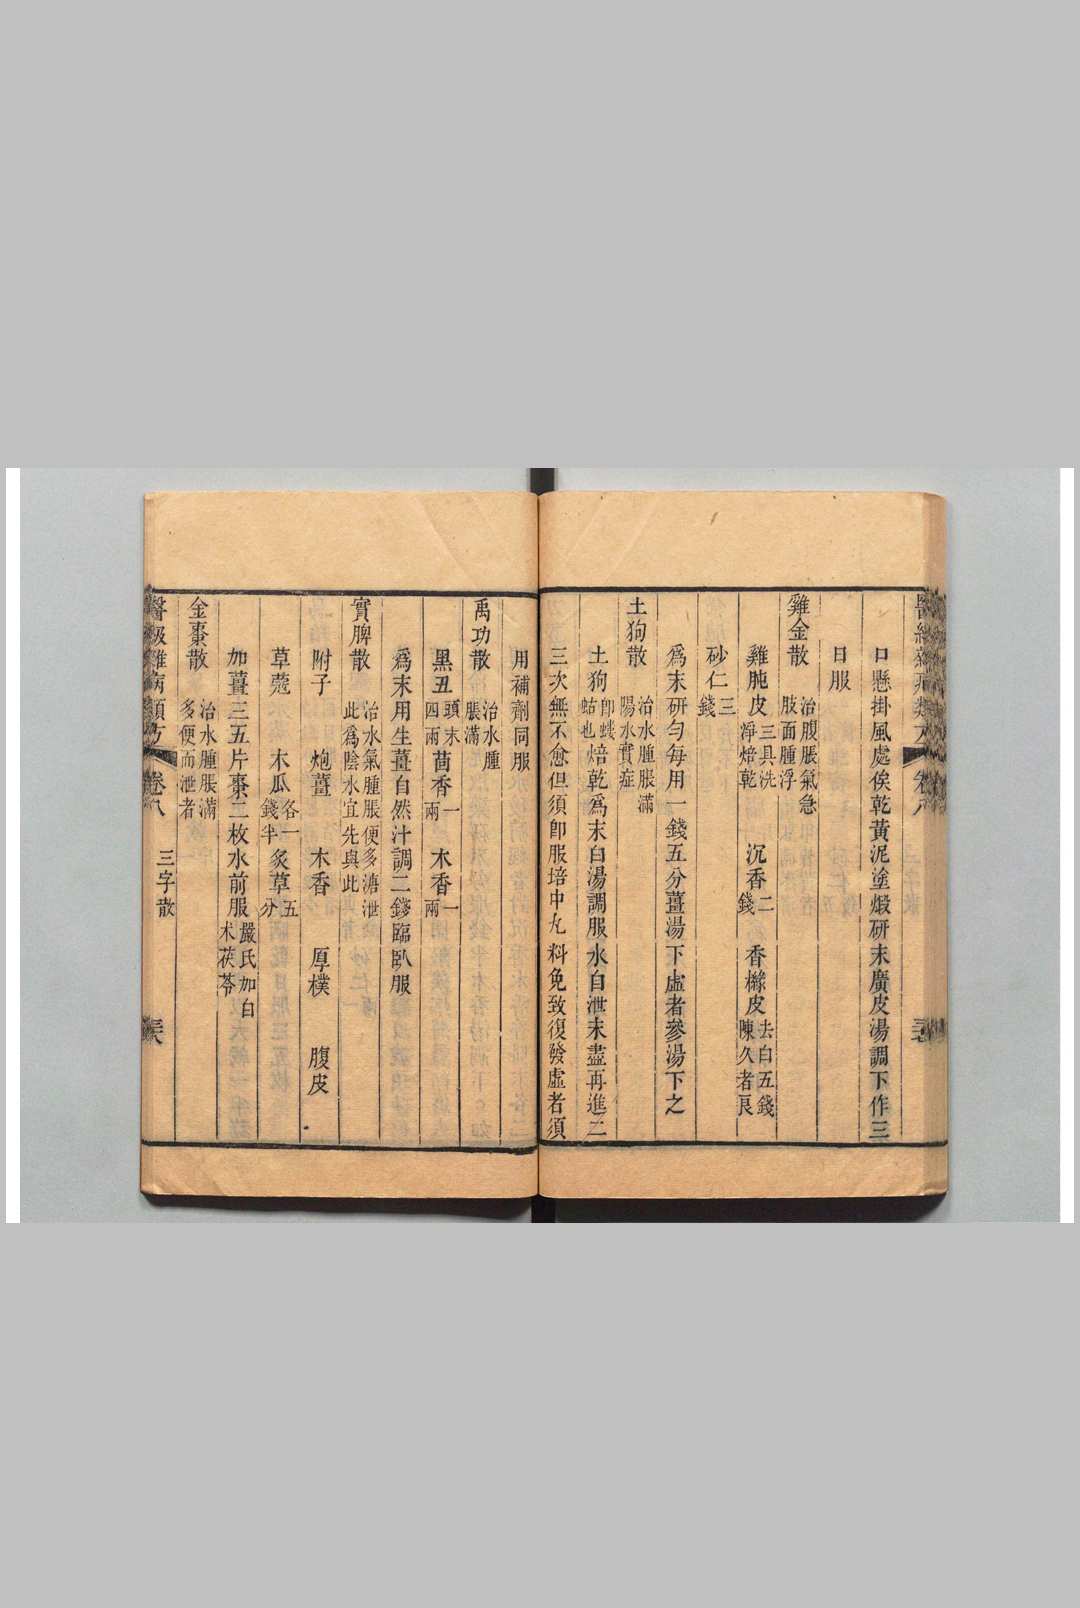 口懸掛風處俟乾黃泥塗煅研末廣皮湯調下作三
日服
雞金散 治腹脹氣急肢面腫浮
雞肫皮 三具洗淨焙乾 沉香 二錢 香櫞皮 去白五錢陳久者良
砂仁 三錢
爲末研勻每用一錢五分薑湯下虛者參湯下之
土狗散 治水腫脹滿陽水實症
土狗 卽螻蛄也 焙乾爲末白湯調服水自泄未盡再進二
三次無不愈但須卽服培中丸料免致復發虛者須
用補劑同服
禹功散 治水腫脹滿
黑丑 頭末四兩 茴香 一兩 木香 一兩
爲末用生薑自然汁調二錢臨臥服
實脾散 治水氣腫脹便多溏泄此爲陰水宜先與此
附子 炮薑 木香 厚樸 腹皮
草蔻 木瓜 各一錢半 炙草 五分
加薑三五片棗二枚水前服 嚴氏加白朮茯苓
金棗散 治水腫脹滿多便而泄者
醫級雜病類方 卷八 三字散